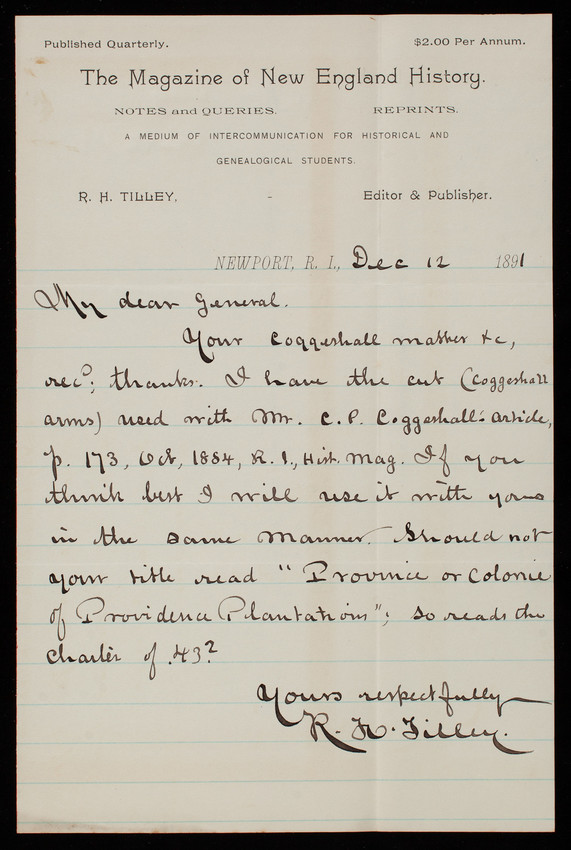 Published Quarterly. $2.00 Per Annum.
The Magazine of New England History.
NOTES and QUERIES. REPRINTS.
A MEDIUM OF INTERCOMMUNICATION FOR HISTORICAL AND
GENEALOGICAL STUDENTS.
R. H. TILLEY, - Editor & Publisher.
NEWPORT, R. I., Dec 12 1891
My dear General.
Your Coggeshall matter &c,
recd; thanks. I have the cut (Coggeshall
arms) used with Mr. C. P. Coggeshall's article,
p. 173, Oct, 1884, R. I., Hist. Mag. If you
think best I will use it with yours
in the same manner. Should not
your title read "Province or Colonie
of Providence Plantations"; so reads the
charter of .43?
Yours respectfully
R. H. Tilley.